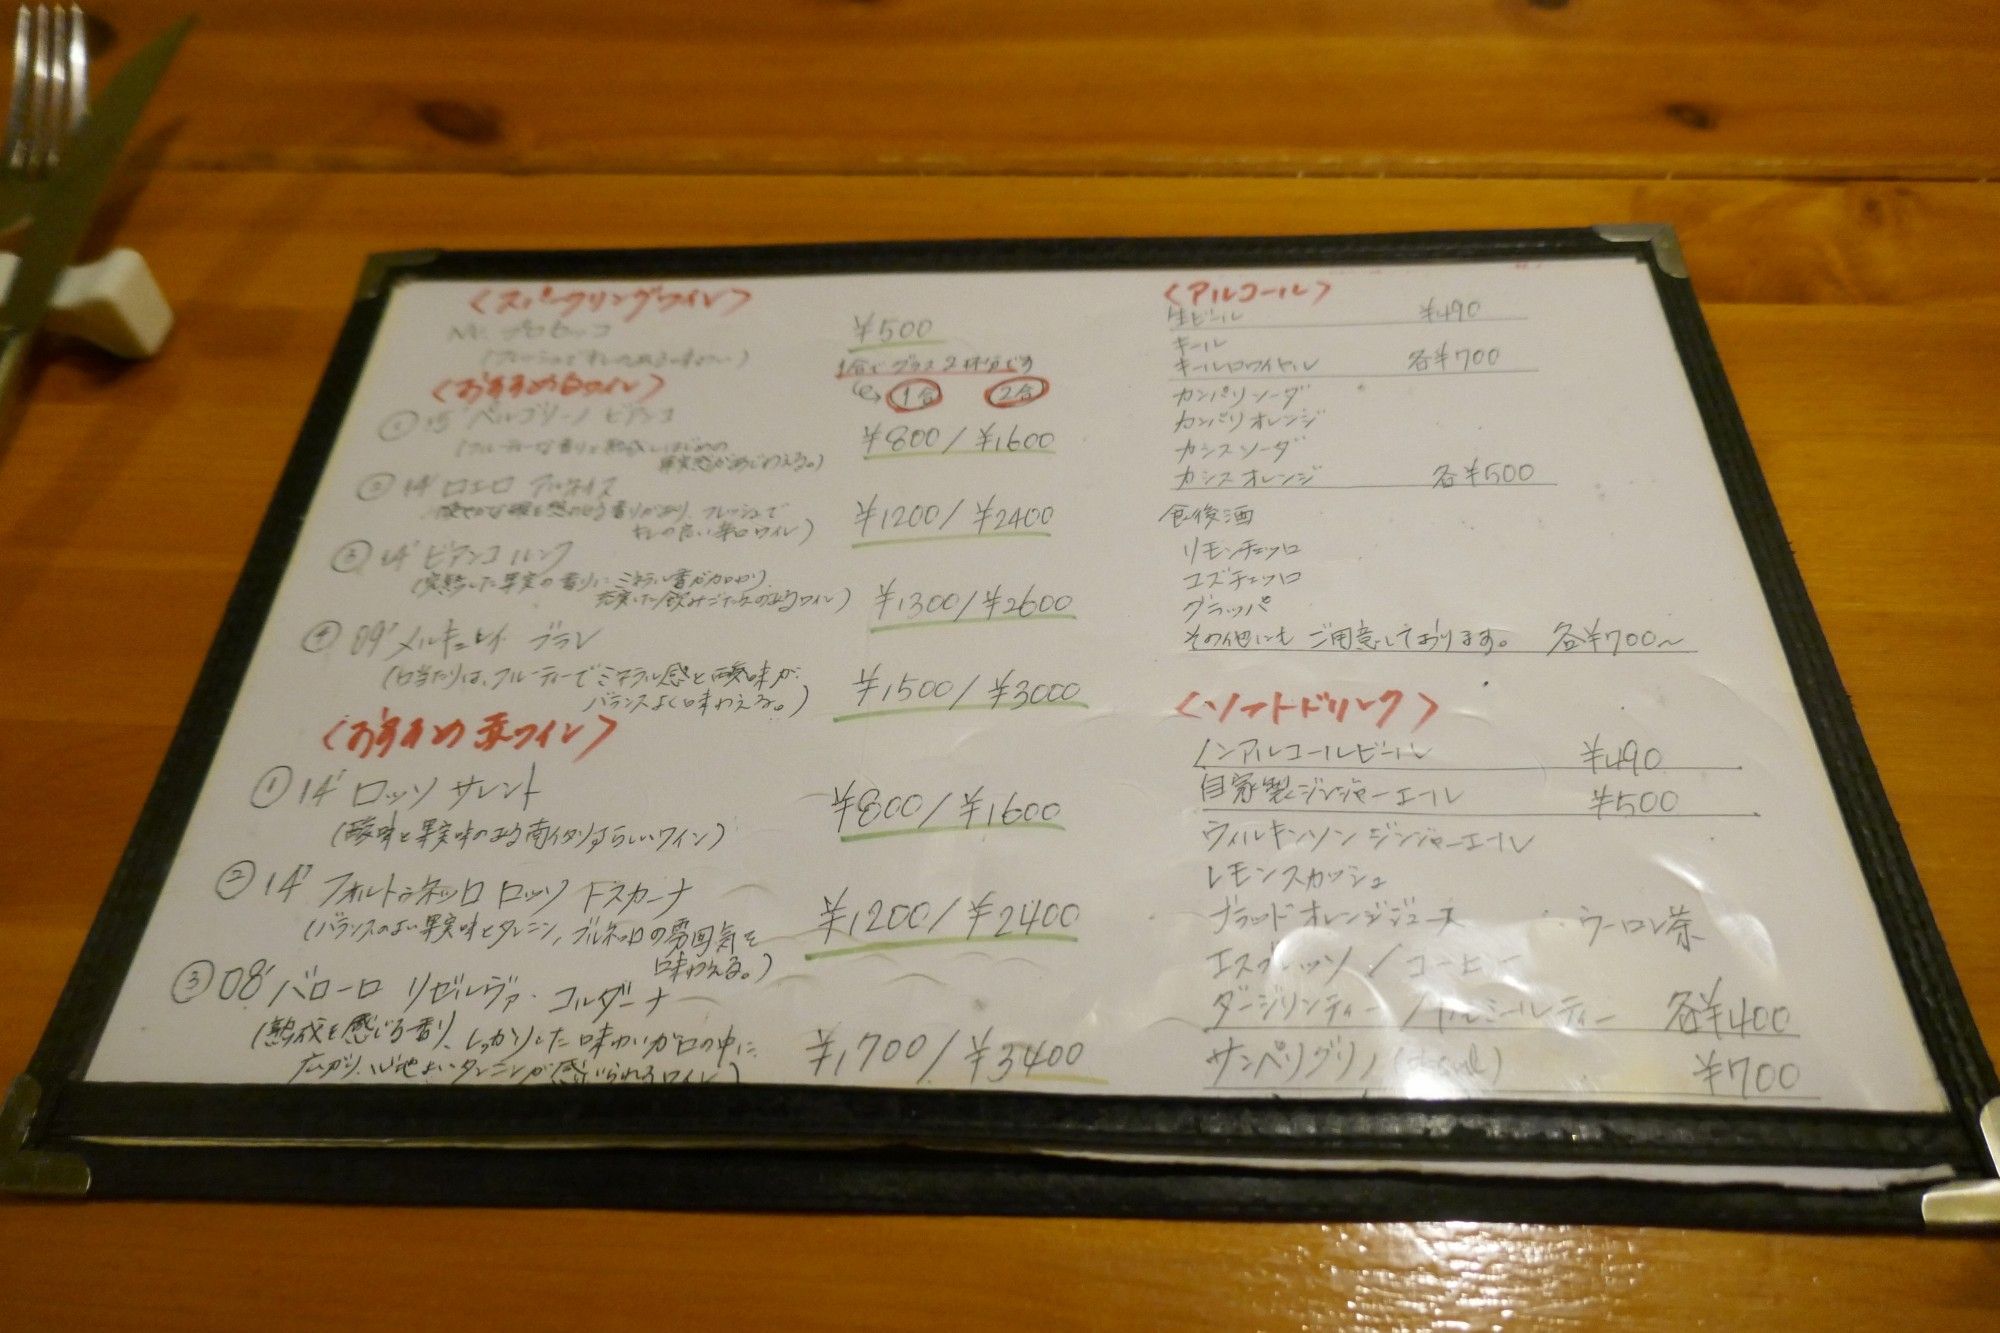 〈スパークリングワイン〉
NV. プロセッコ ¥500
1合でグラス2杯分です
〈おすすめ白ワイン〉 1合 2合
① 15' ペルゴリーノ ビアンコ ¥800/¥1600
(フルーティーな香りと熟成しはじめの
果実感があじわえる。)
② 14' ロエロ アルネイス ¥1200/¥2400
香りがあり、フレッシュで
キレの良い辛口ワイン)
③ 14' ビアンコ ルンク ¥1300/¥2600
(完熟した果実の香りにミネラル香が加わり、
充実した飲みごたえのあるワイン)
④ 09' メルキュレイ ブラン ¥1500/¥3000
(口当たりは、フルーティーでミネラル感と酸味が
バランスよく味わえる。)
〈おすすめ赤ワイン〉
① 14' ロッソ サレント ¥800/¥1600
(酸味と果実味のある南イタリアらしいワイン)
② 14' フォルトゥネッロ ロッソ トスカーナ ¥1200/¥2400
(バランスのよい果実味とタンニン、ブルネッロの雰囲気を
味わえる。)
③ 08' バローロ リゼルヴァ・コルダーナ ¥1,700/¥3400
(熟成を感じる香り、しっかりした味わいが口の中に
広がり、心地よいタンニンが感じられるワイン)
〈アルコール〉
生ビール ¥490
キール
キールロワイヤル 各¥700
カンパリソーダ
カンパリオレンジ
カシスソーダ
カシスオレンジ 各¥500
食後酒
リモンチェッロ
ユズチェッロ
グラッパ
その他にもご用意しております。 各¥700~
〈ソフトドリンク〉
ノンアルコールビール ¥490
自家製ジンジャーエール ¥500
ウィルキンソン ジンジャーエール
レモンスカッシュ
ブラッドオレンジジュース ウーロン茶
エスプレッソ / コーヒー
ダージリンティー / カモミールティー 各¥400
サンペリグリノ ¥700